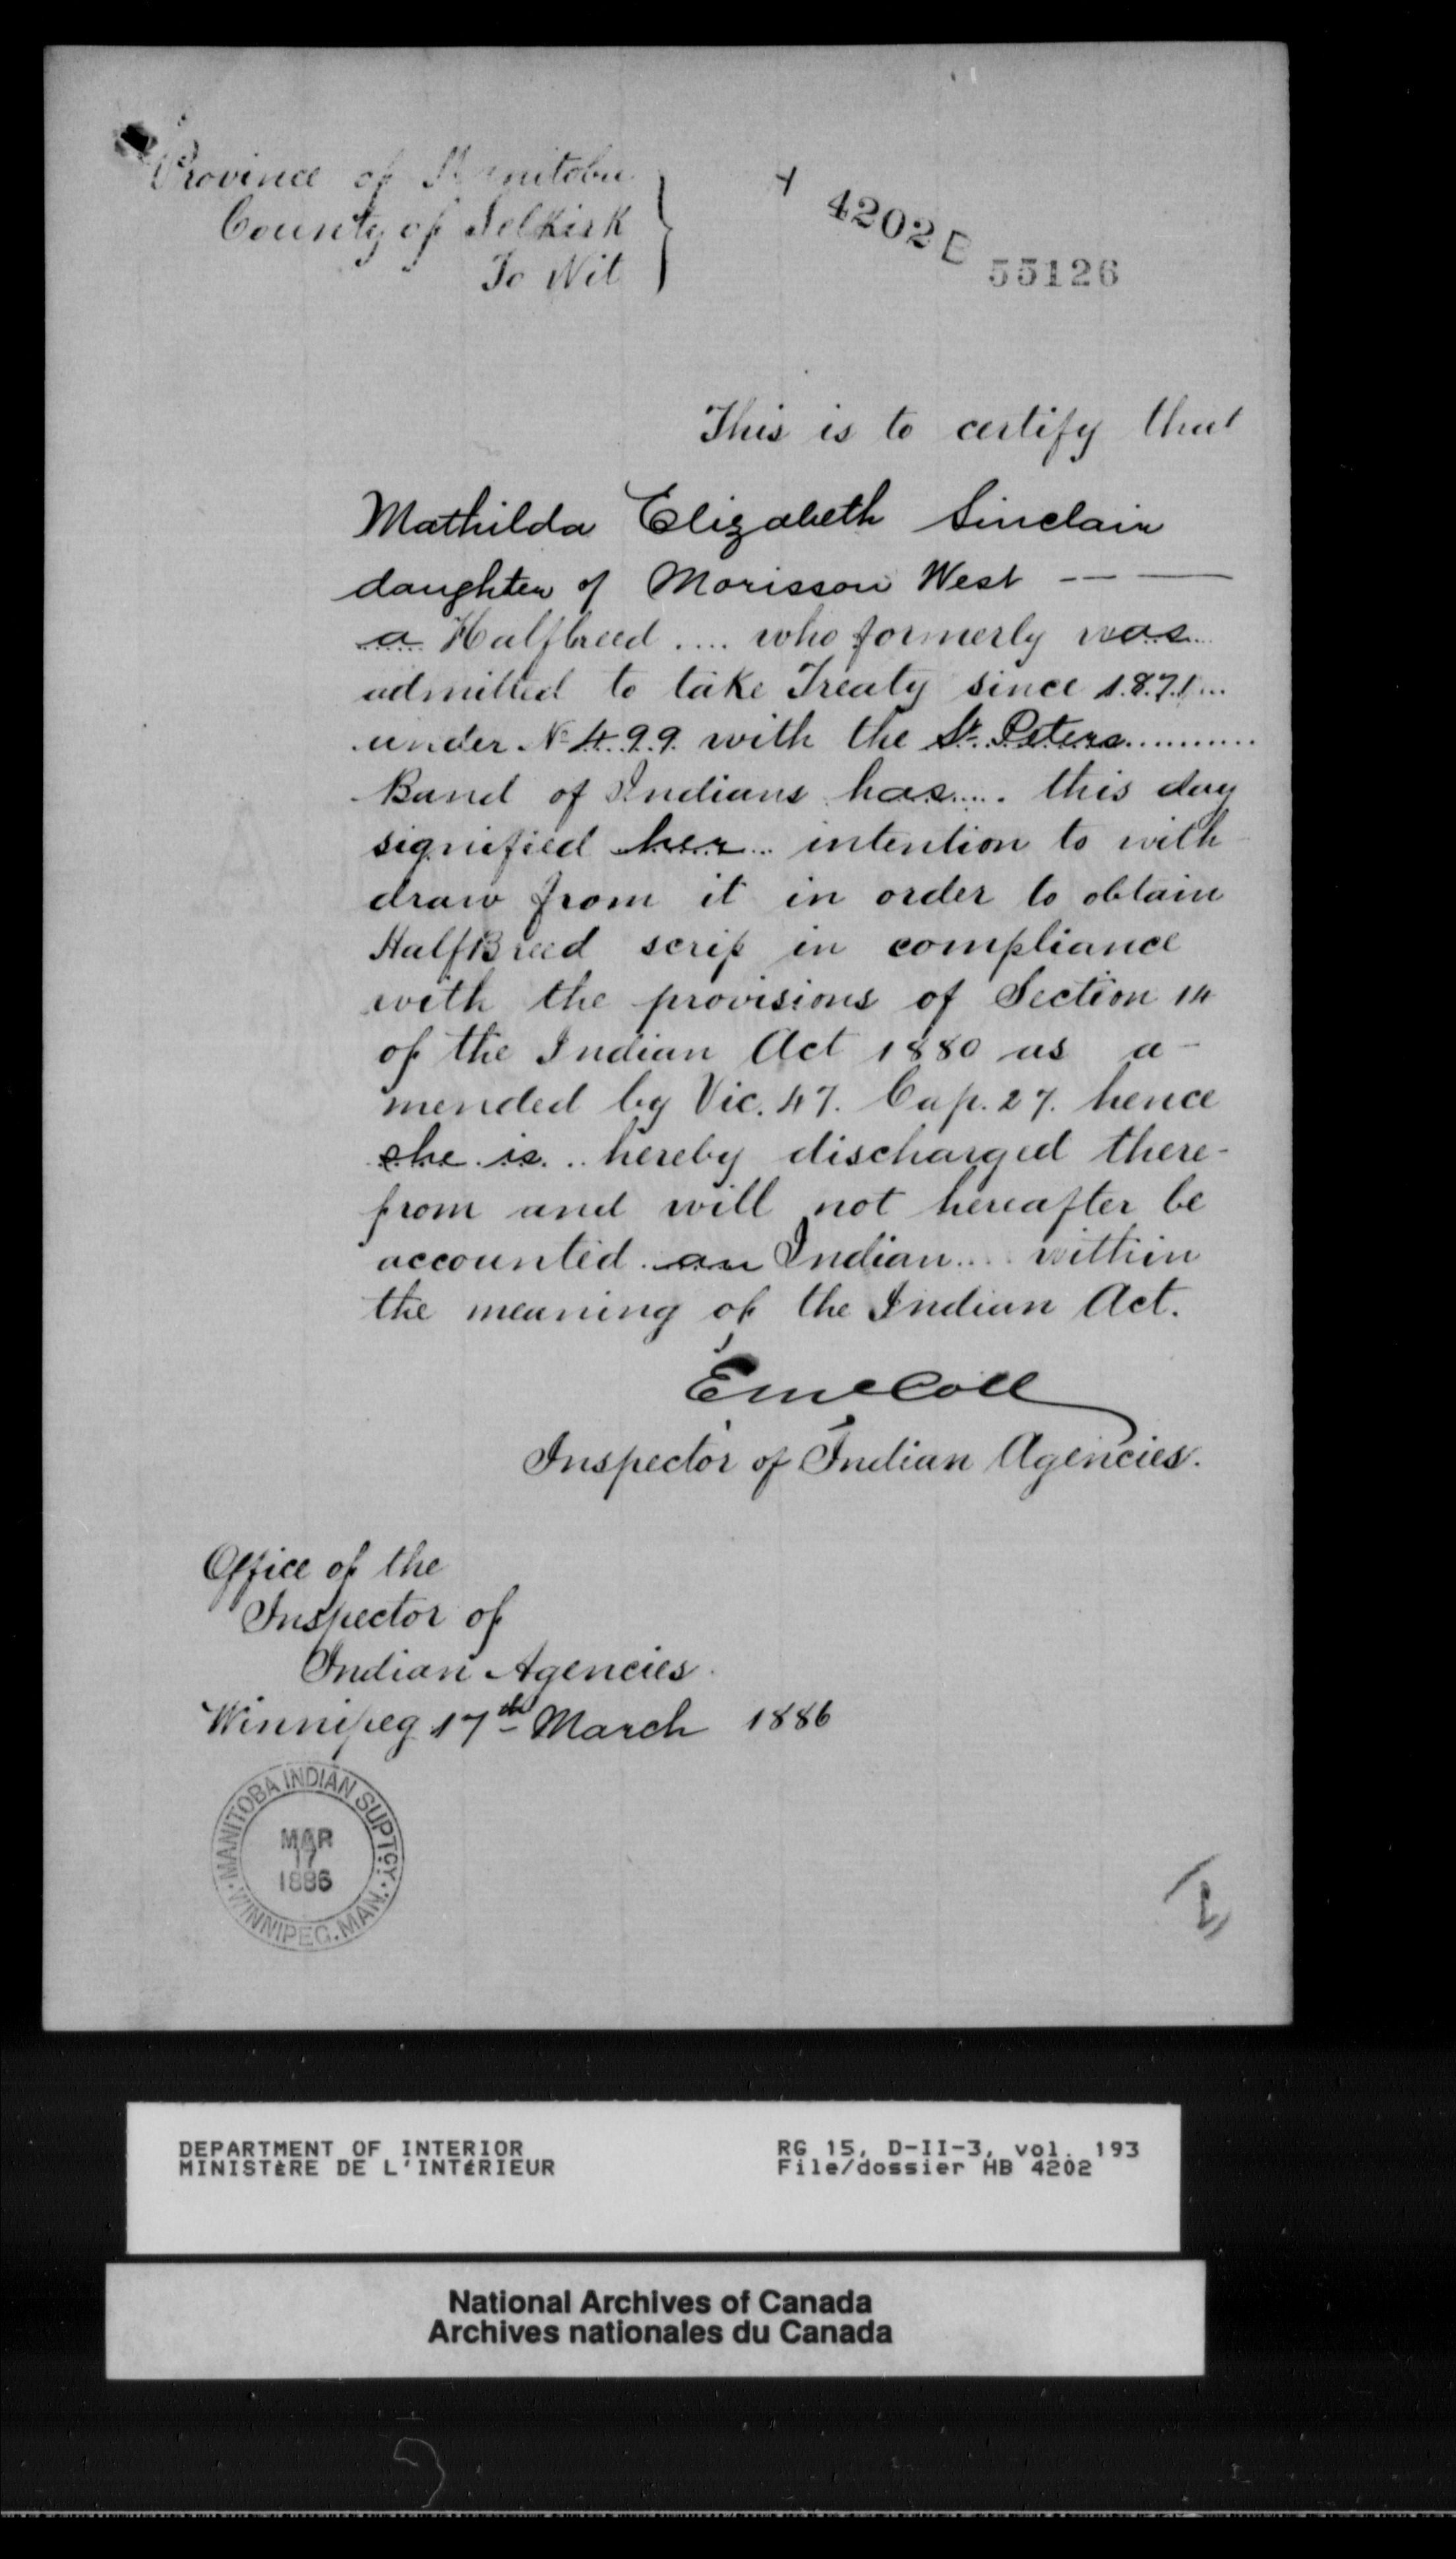 Province of Manitoba
County of Selkirk
To Wit
4202 B
55126
This is to certify that
Mathilda Elizabeth Sinclair
daughter of Morisson West -- —
a Halfbreed .... who formerly was...
admitted to take Treaty since 1.8.7.1...
under No 4.9.9. with the St. Peters..........
Band of Indians has.... this day
signified her... intention to with
draw from it in order to obtain
HalfBreed scrip in compliance
with the provisions of Section 14
of the Indian Act 1880 as a-
mended by Vic. 47. Cap. 27. hence
she is .. hereby discharged there-
from and will not hereafter be
accounted an Indian.... within
the meaning of the Indian Act.
EMcColl
Inspector of Indian Agencies.
Office of the
Inspector of
Indian Agencies.
Winnipeg 17th March 1886
MANITOBA INDIAN SUPTCY.
MAR
17
1886
WINNIPEG. MAN.
DEPARTMENT OF INTERIOR
MINISTÈRE DE L'INTÉRIEUR
RG 15, D-II-3, vol. 193
File/dossier HB 4202
National Archives of Canada
Archives nationales du Canada